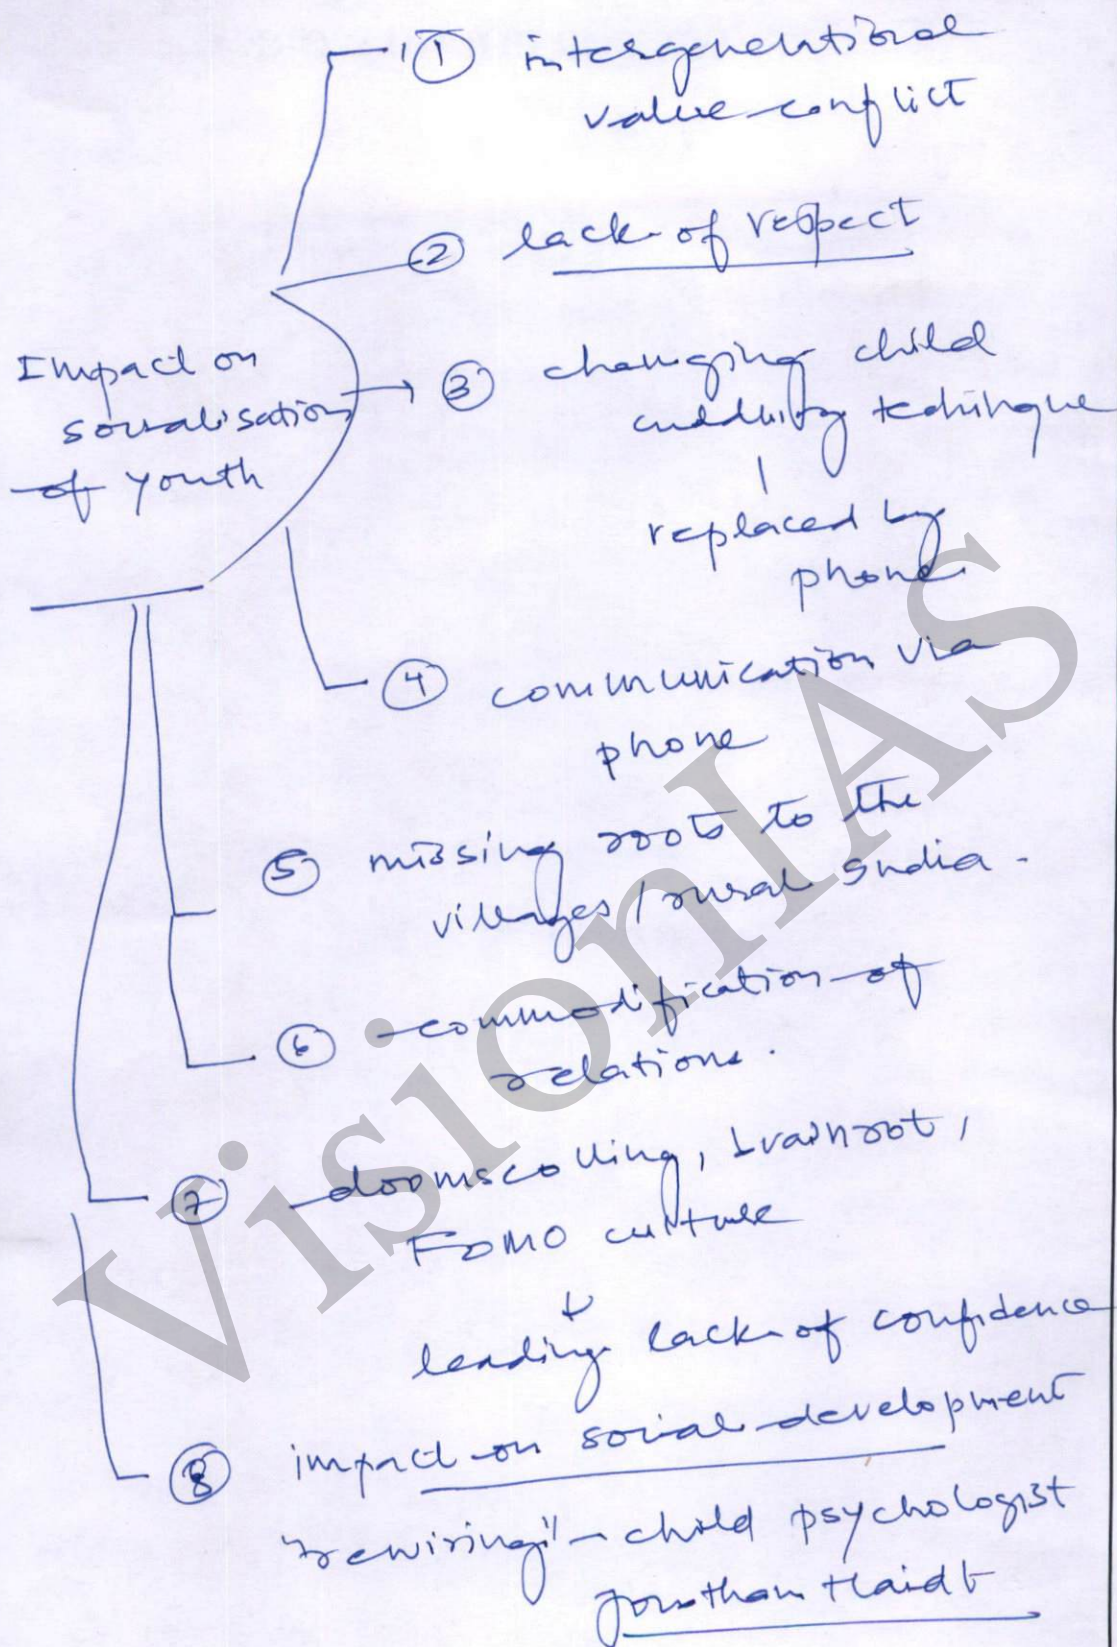 ① intergenerational
value conflict
② lack of respect
Impact on
socialisation
of youth
③ changing child
technique
replaced by
phone.
④ communication via
phone
⑤ missing roots to the
villages / rural India.
⑥ commodification of
relations.
⑦ doomscolling, brainrot,
FOMO culture
↓
leading lack of confidence
⑧ impact on social development
"rewiring" - child psychologist
Jonathan Haidt
VisionIAS